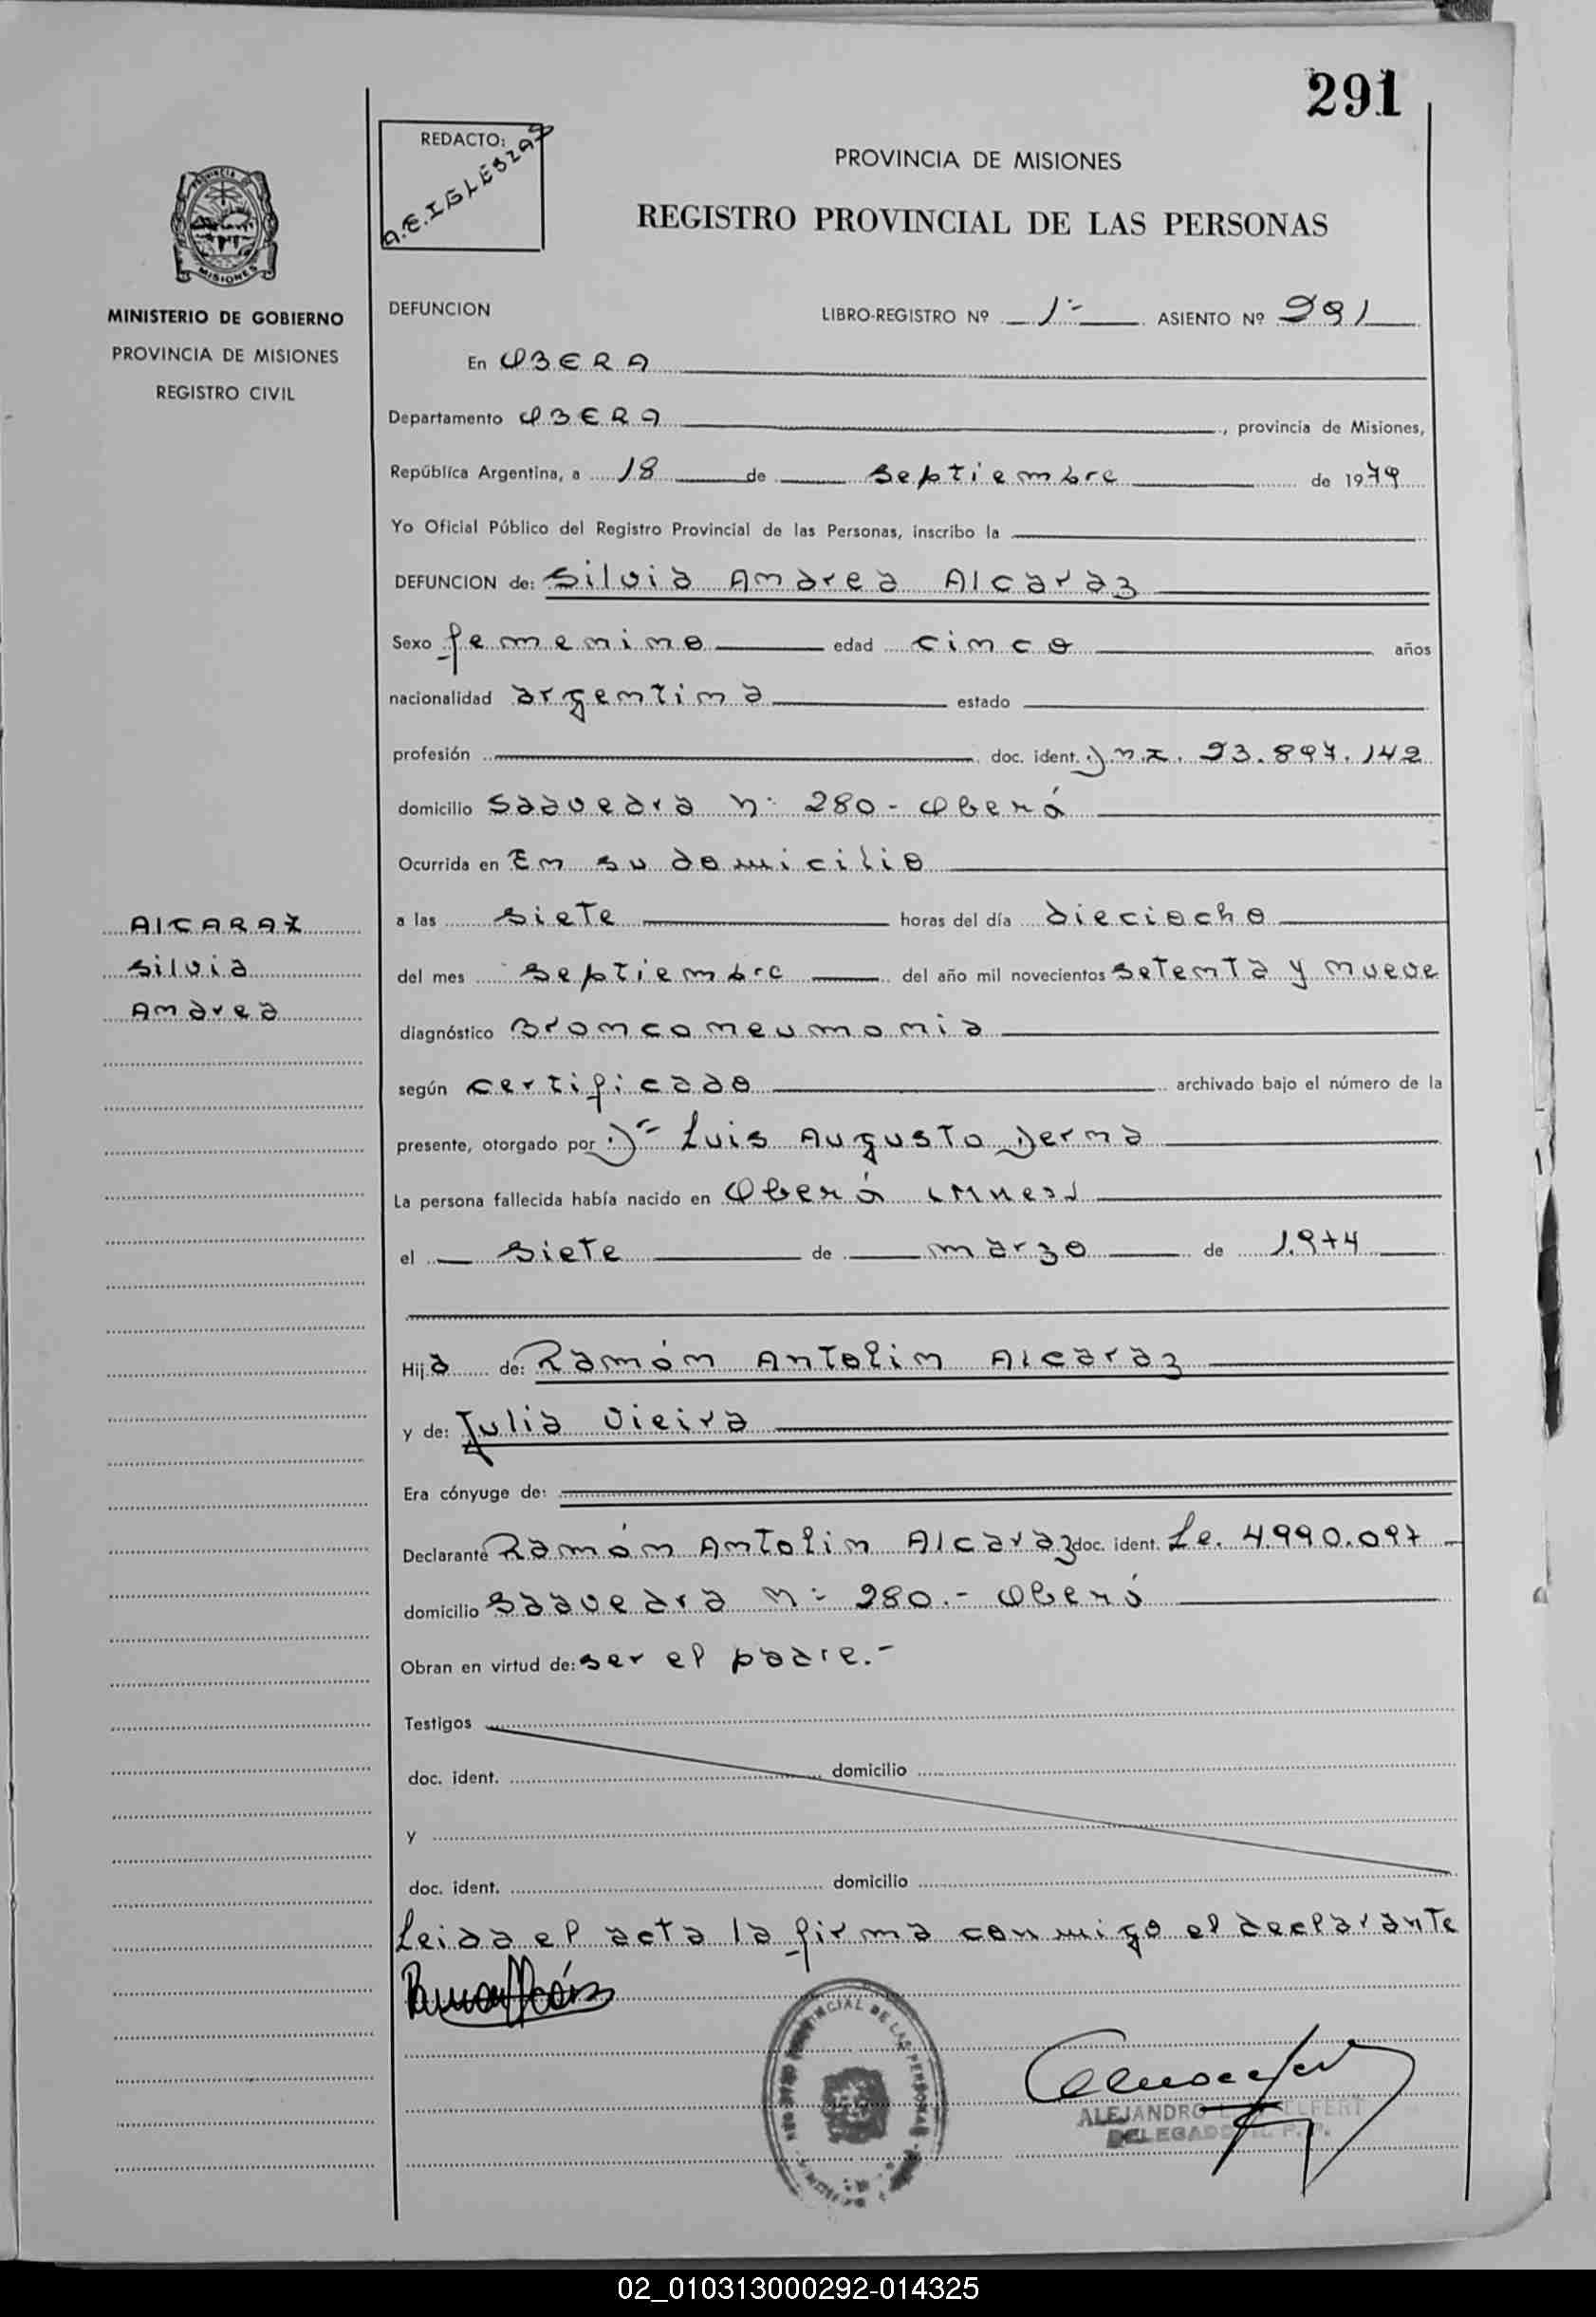 291
REDACTO:
A.E.IGLESIAS
PROVINCIA DE MISIONES
REGISTRO PROVINCIAL DE LAS PERSONAS
PROVINCIA DE
MISIONES
MINISTERIO DE GOBIERNO
PROVINCIA DE MISIONES
REGISTRO CIVIL
DEFUNCION LIBRO-REGISTRO Nº 1º ASIENTO Nº 291
En OBERA
Departamento OBERA, provincia de Misiones,
República Argentina, a 18 de septiembre de 1979
Yo Oficial Público del Registro Provincial de las Personas, inscribo la
DEFUNCION de: Silvia Andrea Alcaraz
Sexo femenino edad cinco años
nacionalidad argentina estado
profesión doc. ident. D.N.I. 23.897.142
domicilio Saavedra Nº 280 - Oberá
Ocurrida en En su domicilio
a las siete horas del día dieciocho
del mes septiembre del año mil novecientos setenta y nueve
diagnóstico Bronconeumonia
según certificado archivado bajo el número de la
presente, otorgado por Dr Luis Augusto Derna
La persona fallecida había nacido en Oberá
el siete de marzo de 1.974
Hija de: Ramón Antolin Alcaraz
y de: Julia Vieira
Era cónyuge de:
Declarante Ramón Antolin Alcaraz doc. ident. L.e. 4.990.097
domicilio Saavedra Nº 280.- Oberá
Obran en virtud de: ser el padre.-
Testigos
doc. ident. domicilio
y
doc. ident. domicilio
Leida el acta la firma conmigo el declarante
ALCARAZ
Silvia
Andrea
ALEJANDRO
DELEGADO R. P. P.
02_010313000292-014325